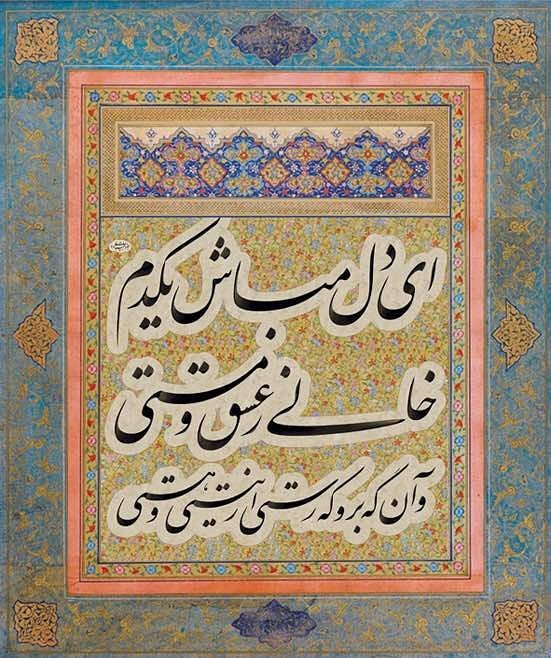 ای دل مباش یکدم
خالی ز عشق و مستی
وآن گه برو که رستی از نیستی و هستی